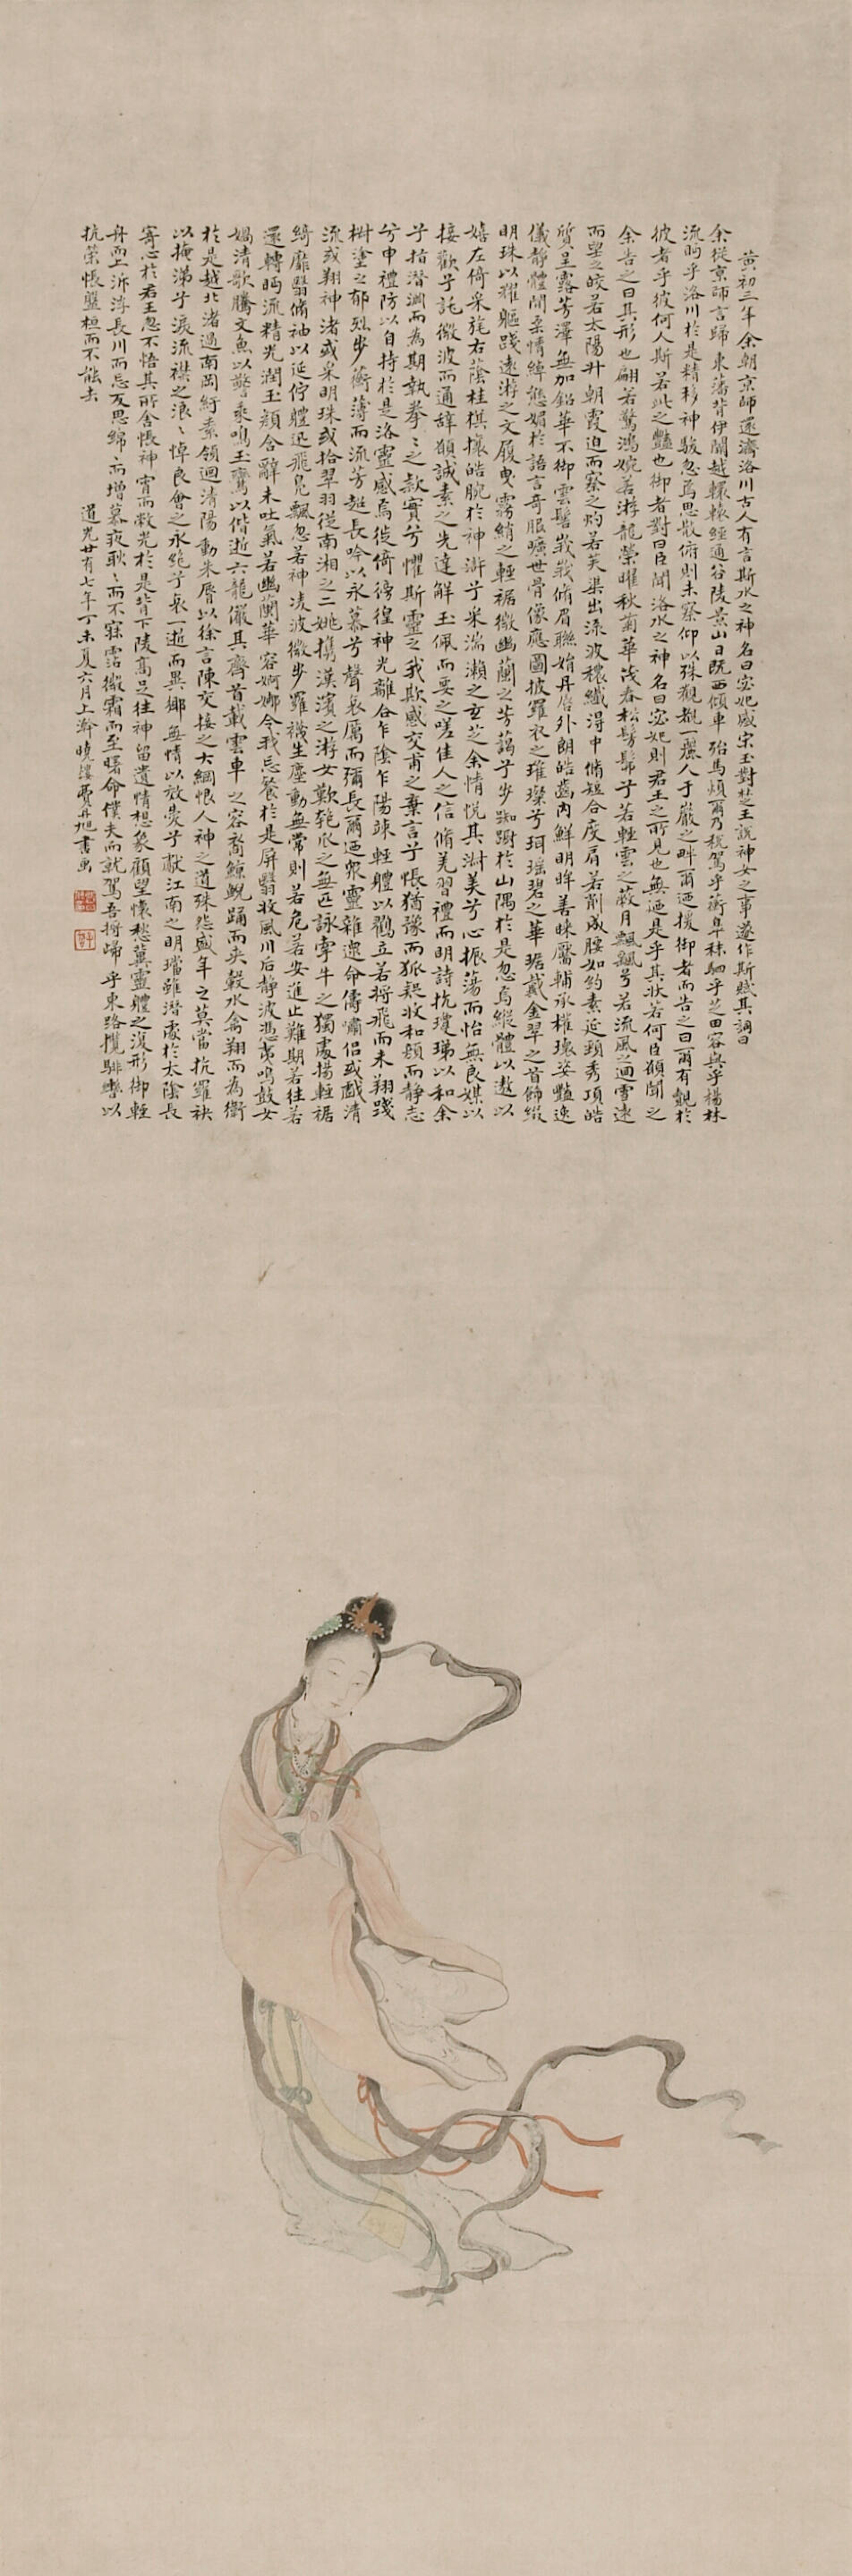 黃初三年余朝京師還濟洛川古人有言斯水之神名曰宓妃感宋玉對楚王說神女之事遂作斯賦其詞曰
余從京師言歸東藩背伊闕越轘轅經通谷陵景山日既西傾車殆馬煩爾乃稅駕乎蘅皋秣駟乎芝田容與乎楊林
流眄乎洛川於是精移神駭忽焉思散俯則未察仰以殊觀覩一麗人于巖之畔爾迺援御者而告之曰爾有覿於
彼者乎彼何人斯若此之豔也御者對曰臣聞洛水之神名曰宓妃則君王之所見也無迺是乎其狀若何臣願聞之
余告之曰其形也翩若驚鴻婉若游龍榮曜秋菊華茂春松髣髴兮若輕雲之蔽月飄颻兮若流風之迴雪遠
而望之皎若太陽升朝霞迫而察之灼若芙蕖出淥波穠纖得中脩短合度肩若削成腰如約素延頸秀項皓
質呈露芳澤無加鉛華不御雲髻峩峩脩眉聯娟丹脣外朗皓齒內鮮明眸善睞靨輔承權瓌姿豔逸
儀靜體閒柔情綽態媚於語言奇服曠世骨像應圖披羅衣之璀璨兮珥瑤碧之華琚戴金翠之首飾綴
明珠以耀軀踐遠游之文履曳霧綃之輕裾微幽蘭之芳藹兮步踟躕於山隅於是忽焉縱體以遨以
嬉左倚采旄右蔭桂旗攘皓腕於神滸兮采湍瀨之玄芝余情悅其淑美兮心振蕩而怡無良媒以
接歡兮託微波而通辭願誠素之先達解玉佩而要之嗟佳人之信脩羌習禮而明詩抗瓊珶以和余
兮指潛淵而為期執拳〻之款實兮懼斯靈之我欺感交甫之棄言兮悵猶豫而狐疑收和顏而靜志
兮申禮防以自持於是洛靈感焉徙倚徬徨神光離合乍陰乍陽竦輕體以鶴立若將飛而未翔踐
椒塗之郁烈步蘅薄而流芳超長吟以永慕兮聲哀厲而彌長爾迺衆靈雜遝命儔嘯侶或戲清
流或翔神渚或采明珠或拾翠羽從南湘之二姚攜漢濱之游女歎匏瓜之無匹詠牽牛之獨處揚輕裾
綺靡翳脩袖以延佇體迅飛鳧飄忽若神淩波微步羅襪生塵動無常則若危若安進止難期若往若
還轉眄流精光潤玉顏含辭未吐氣若幽蘭華容婀娜令我忘餐於是屏翳收風川后靜波馮夷鳴鼓女
媧清歌騰文魚以警乘鳴玉鸞以偕逝六龍儼其齊首載雲車之容裔鯨鯢踊而夾轂水禽翔而為衛
於是越北渚過南岡紆素領迴清陽動朱脣以徐言陳交接之大綱恨人神之道殊怨盛年之莫當抗羅袂
以掩涕兮淚流襟之浪〻悼良會之永絕兮哀一逝而異鄉無情以效愛兮獻江南之明璫雖潛處於太陰長
寄心於君王忽不悟其所舍悵神宵而蔽光於是背下陵高足往神留遺情想象顧望懷愁冀靈體之復形御輕
舟而上泝浮長川而忘反思綿〻而增慕夜耿〻而不寐霑繁霜而至曙命僕夫而就駕吾將歸乎東路攬騑轡以
抗策悵盤桓而不能去
道光廿有七年丁未夏六月上澣曉樓費丹旭書畫